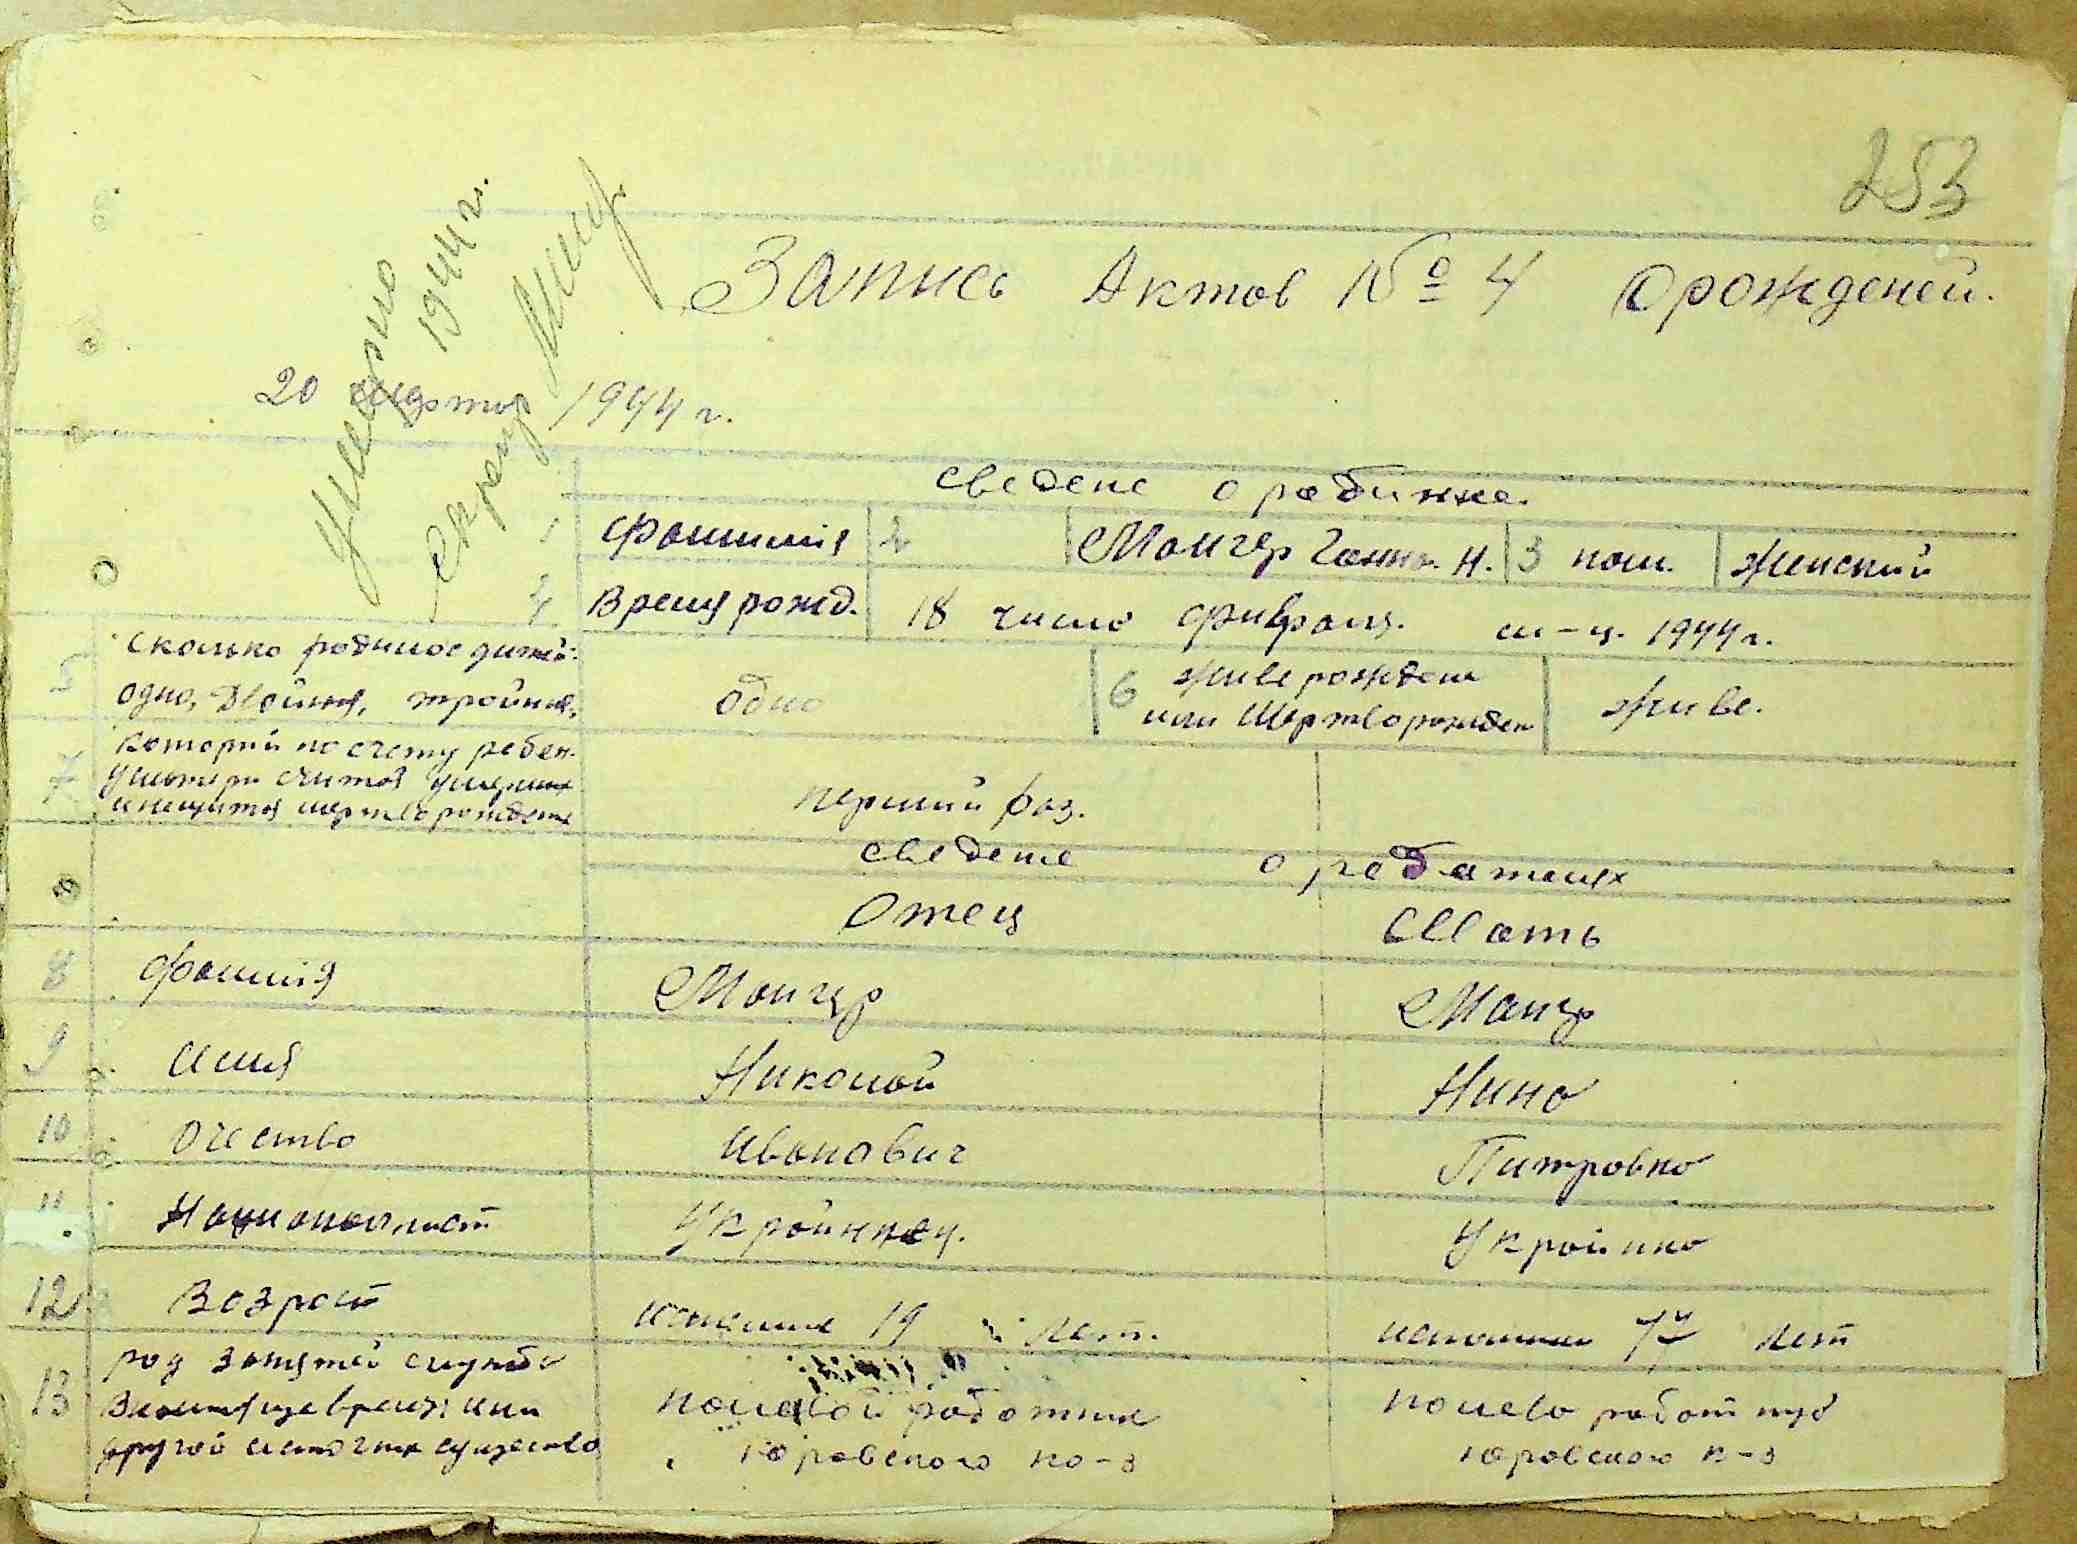 253
Умерло
1944 г.
Запись Актов № 4 О рожденей.
20 марта 1944 г.
Сведене о рабинке.
1 Фамилия 2 Мангер Ганна. Н. 3 пол. Женский
4 Время рожд. 18 число Фивраля. м-ц. 1944 г.
5 Сколько родилос дитей:
одно, двойня, тройня, одно 6 живе рожден
или мертворожден живе.
7 Которий по счету ребен.
у матери считая умерших
и нещитая мертворожден перший раз.
Сведене о родителях
Отец Мать
8 Фамилия Мангер Мангер
9 Имия Николай Нина
10 Очество Иванович Питровна
11. Националност Українец. Українка
12 Возраст исполнил 19 лет. исполнил лет
13 род занятей служби
другой источник существо
полевой работник полево работник
Юровского ко-з Юровского к-з